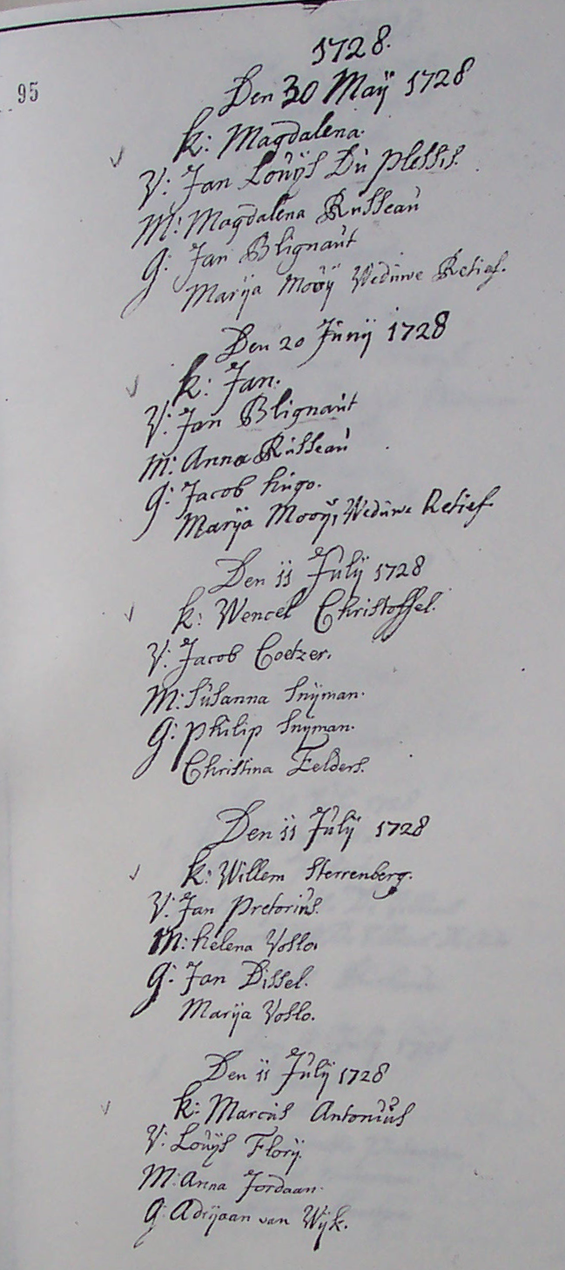 1728.
95
Den 30 Maÿ 1728
k: Magdalena.
V: Jan Louÿs Du Plessis.
M: Magdalena Russeau
G: Jan Blignaut
Marÿa Mooÿ Weduwe Retief.
Den 20 Junÿ 1728
k: Jan.
V: Jan Blignaut
M: Anna Russeau
G: Jacob Hugo.
Marÿa Mooÿ, Weduwe Retief
Den 11 Julÿ 1728
k: Wencel Christoffel.
V: Jacob Coetzer.
M: Susanna Snÿman.
G: Philip Snÿman.
Christina Felders.
Den 11 Julÿ 1728
k: Willem Sterrenberg.
V: Jan Pretorius.
M: Helena Vosloo
G: Jan Dissel.
Marÿa Voslo.
Den 11 Julÿ 1728
k: Marcus Antonius
V: Louÿs Florÿ
M: Anna Jordaan.
G: Adrÿaan van Wÿk.